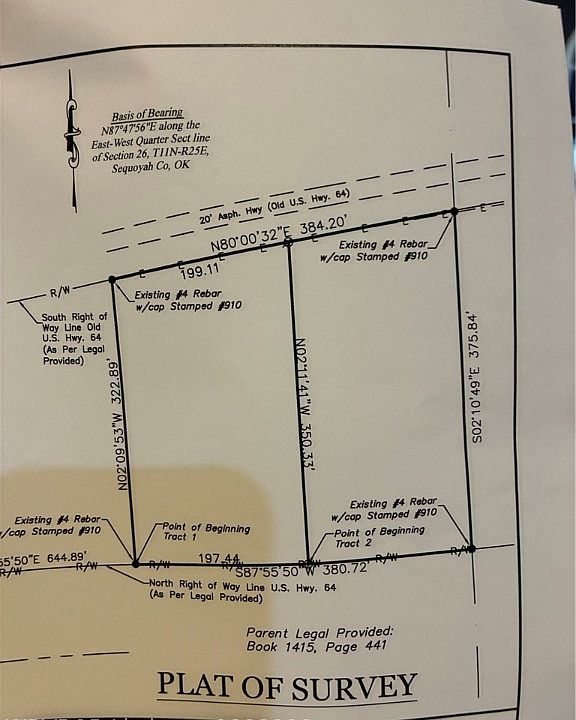 Basis of Bearing
N87°47'56"E along the
East-West Quarter Sect line
of Section 26, T11N-R25E,
Sequoyah Co, OK
20' Asph. Hwy (Old U.S. Hwy. 64)
N80°00'32"E 384.20'
E E E E E E E E
199.11
Existing #4 Rebar
w/cap Stamped #910
Existing #4 Rebar
w/cap Stamped #910
R/W
South Right of
Way Line Old
U.S. Hwy. 64
(As Per Legal
Provided)
N02°09'53"W 322.89'
N02°11'41"W 350.33'
S02°10'49"E 375.84'
Existing #4 Rebar
w/cap Stamped #910
Point of Beginning
Tract 1
Existing #4 Rebar
w/cap Stamped #910
Point of Beginning
Tract 2
55'50"E 644.89'
R/W R/W R/W R/W R/W R/W
197.44
S87°55'50"W 380.72'
North Right of Way Line U.S. Hwy. 64
(As Per Legal Provided)
Parent Legal Provided:
Book 1415, Page 441
PLAT OF SURVEY